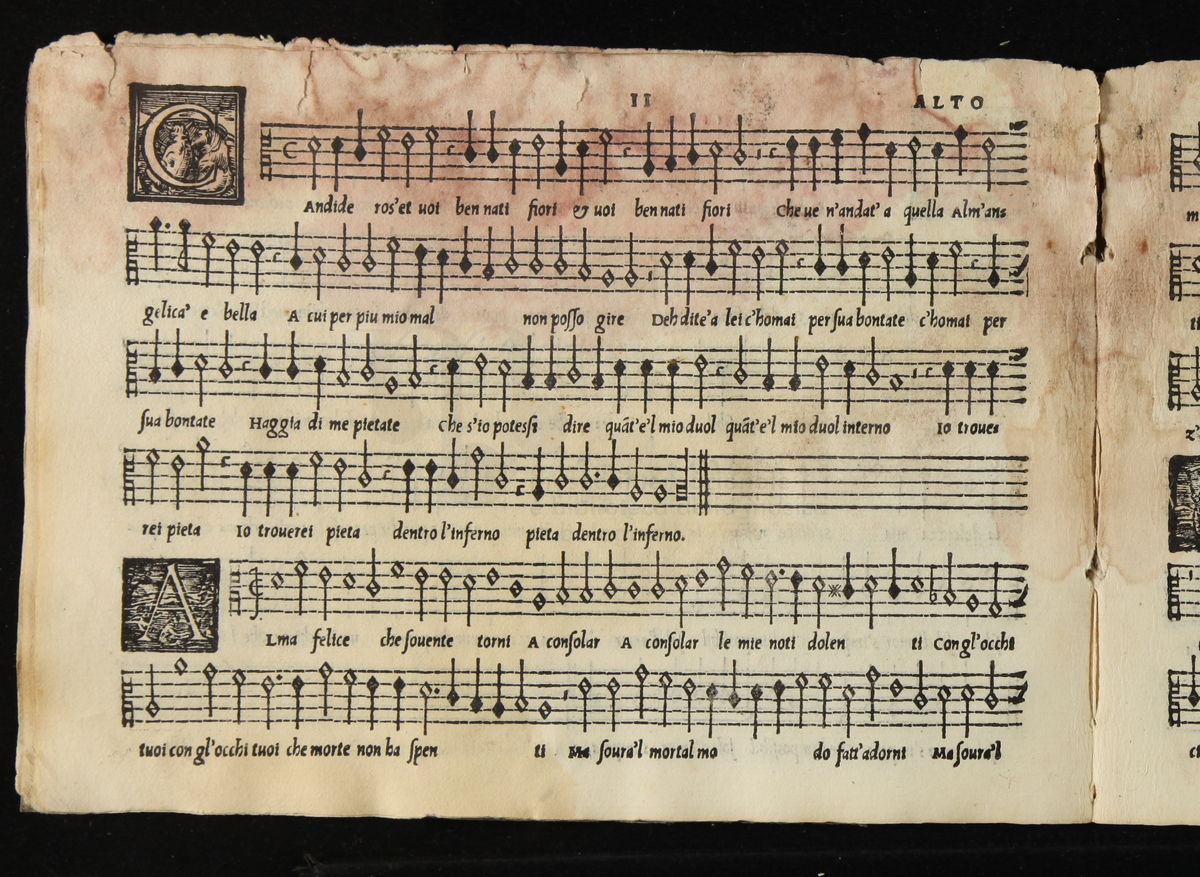 II ALTO
CAndide ros'et uoi ben nati fiori & uoi ben nati fiori Che ue n'andat'a quella Alm'ans
gelica' e bella A cui per piu mio mal non posso gire Deh dite'a lei c'homai per sua bontate c'homai per
sua bontate Haggia di me pietate Che s'io potessi dire quāt'e'l mio duol quāt'e'l mio duol interno Io troues
rei pieta Io trouerei pieta dentro l'inferno pieta dentro l'inferno.
ALma felice che souente torni A consolar A consolar le mie noti dolen ti Con gl'occhi
tuoi con gl'occhi tuoi che morte non ha spen ti Ma soura'l mortal mo do fatt'adorni Ma soura'l